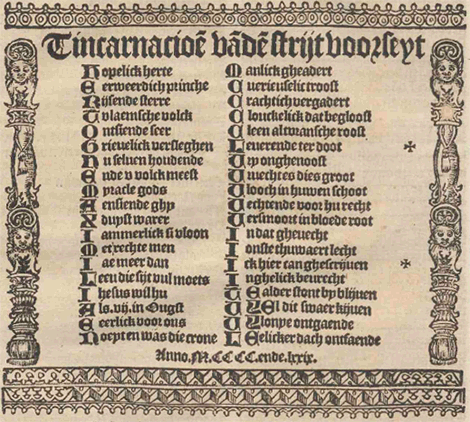 Tincarnacioē vādē strijt voorseyt
Hopelick herte
Eerweerdich prinche
Rijsende sterre
Tvlaemsche volck
Ontsiende seer
Grieuelick verslegghen
Hu seluen houdende
Ende v volck meest
Myracle gods
Aensiende ghy
Xduyst waren
Iammerlick si vloon
Met rechte men
Iae meer dan
Leeu die sijt vul moets
Ihesus wil hu
Als .vij. in Ougst
Eeerlick voor ons
Noeyt en was die crone
Manlick gheadert
troost
Crachtich vergadert
Clouckelick dat begloost
Cleen altransche roost
Leuerende ter doot
Vp onghenoost
dies groot
Vlooch in huwen schoot
Vechtende voor hu recht
Versmoort in bloede root
In dat gheuecht
Ionste thuwaert lecht
Ick hier can ghescrijuen
Inghelick
Tealder stont by blijuen
dit swaer kijuen
ontgaende
Leelicker dach ontfaende
Anno. M. CCCC. ende. lxix.